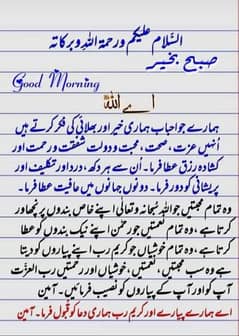 السَّلام علیکم ورحمۃ اللہ وبرکاتہ
صبح بخیر
Good Morning
اے اللہ
ہمارے جو احباب ہماری خیر اور بھلائی کی فکر کرتے ہیں
اُنہیں عزت، صحت، محبت و دولت شفقت و رحمت اور
کشادہ رزق عطا فرما۔ اُن سے ہر دکھ، درد اور تکلیف اور
پریشانی کو دور فرما۔ دونوں جہانوں میں عافیت عطا فرما۔
وہ تمام محبتیں جو اللہ سُبحانہ وتعالٰی اپنے خاص بندوں پر نچھاور
کرتا ہے، وہ تمام نعمتیں جو رحمٰن اپنے نیک بندوں کو عطا
کرتا ہے، وہ تمام خوشیاں جو کریم رب اپنے پیاروں کو دیتا
ہے وہ سب محبتیں، نعمتیں، خوشیاں اور رحمتیں رب العزّت
آپ کو اور آپ کے پیاروں کو نصیب فرمائیں۔ آمین
اے ہمارے پیارے اور کریم رب ہماری دعا کو قبول فرما۔ آمین